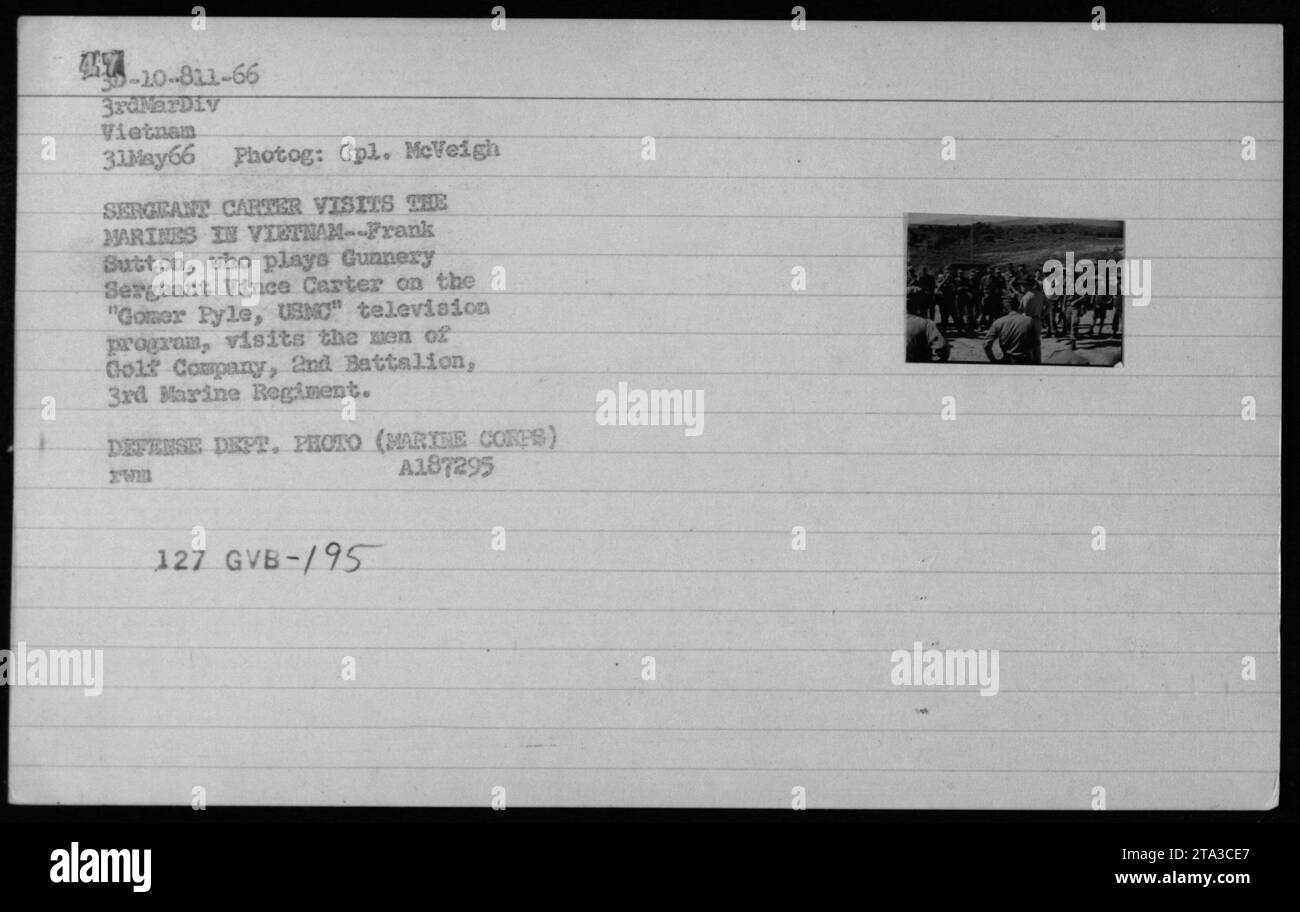 47
3D-10-811-66
3rdMarDiv
Vietnam
31May66 Photog: Cpl. McVeigh
SERGEANT CARTER VISITS THE
MARINES IN VIETNAM--Frank
Sutton, who plays Gunnery
Sergeant Vince Carter on the
"Gomer Pyle, USMC" television
program, visits the men of
Golf Company, 2nd Battalion,
3rd Marine Regiment.
DEFENSE DEPT. PHOTO (MARINE CORPS)
rwm A187295
127 GVB-195
alamy
alamy
alamy
alamy
alamy
Image ID: 2TA3CE7
www.alamy.com